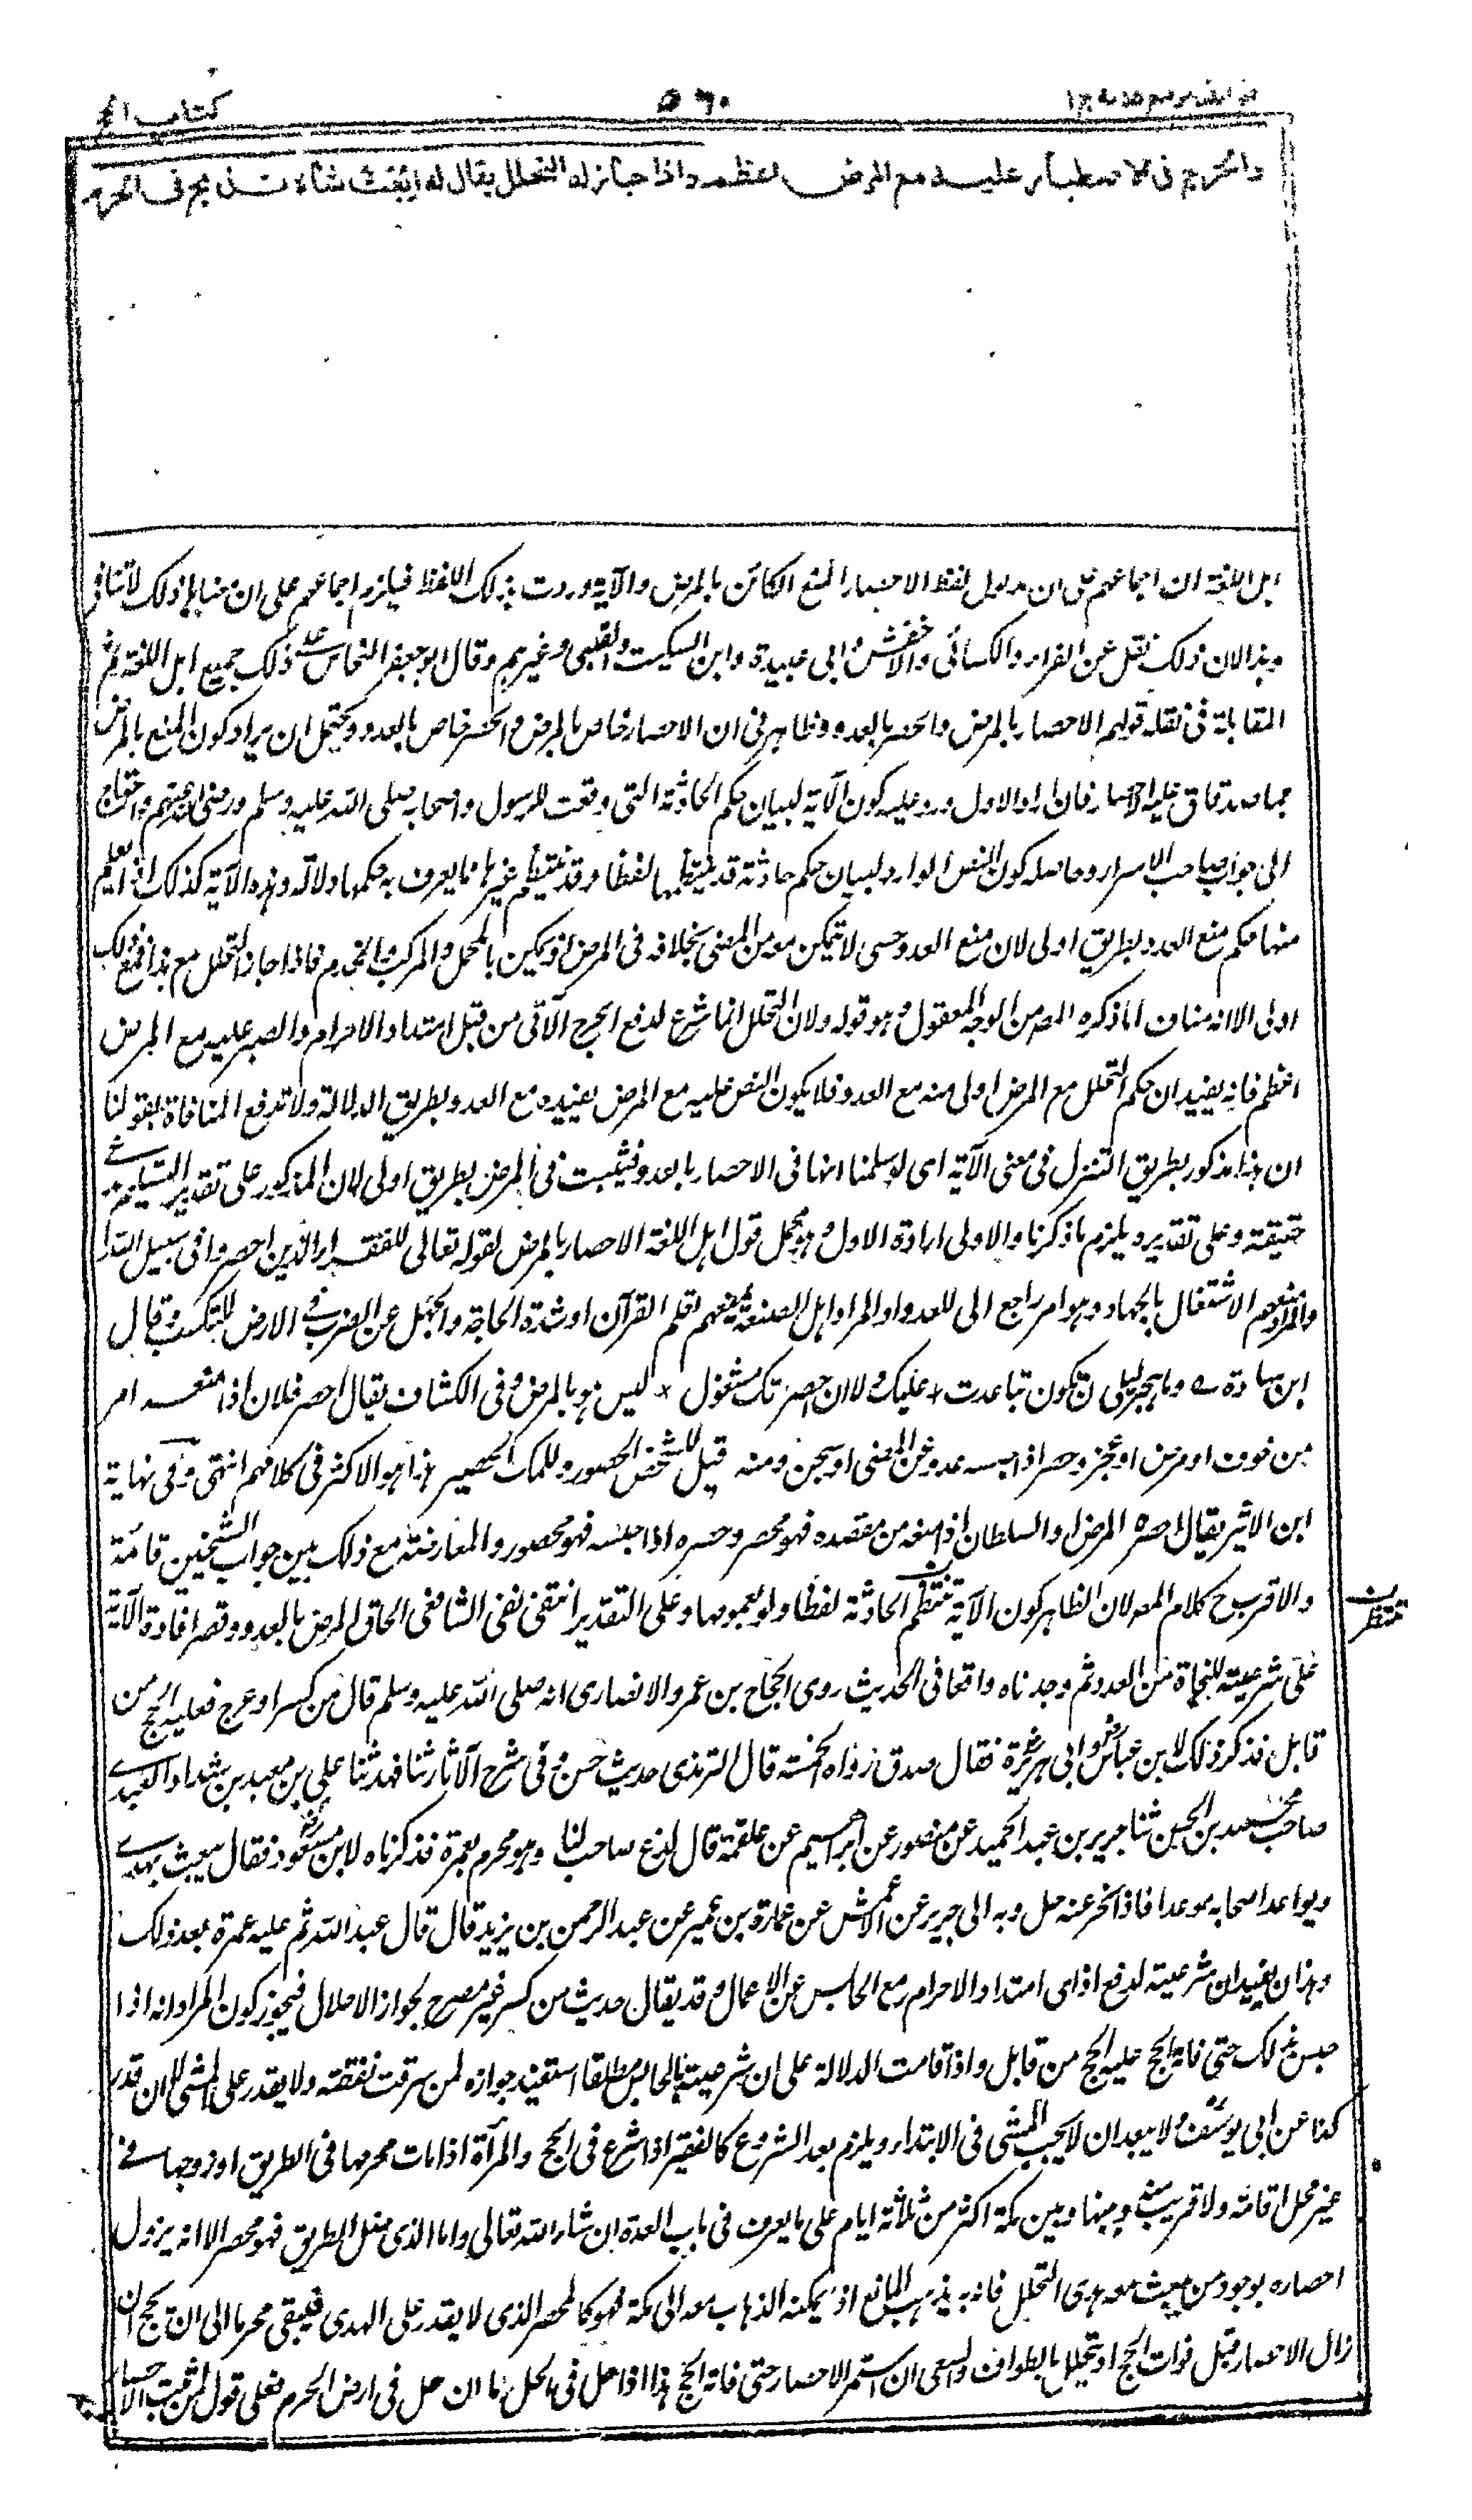 كتاب الحج
٥٦٠
والحرج في الاصطبار عليه مع المرض اعظم واذا جاز له التحلل يقال له ابعث شاة تذبح في الحرم
اهل اللغة ان اجماعهم على ان مدلول لفظ الاحصار المنع الكائن بالمرض والآية وردت بذلك اللفظ فيلزم اجماعهم على ان معناها ذلك لا تنافي
وهذا لان ذلك نقل عن الفراء والكسائي والاخفش وابي عبيدة وابن السكيت والقتبي وغيرهم وقال ابو جعفر النحاس على ذلك جميع اهل اللغة ثم
المقابلة في نقله قولهم الاحصار بالمرض والحصر بالعدو وظاهر في ان الاحصار خاص بالمرض والحصر خاص بالعدو ويحتمل ان يراد كون المنع بالمرض
مما صدقات عليه الاحصار فان اراد الاول ورد عليه كون الآية لبيان حكم الحادثة التي وقعت للرسول واصحابه صلى الله عليه وسلم ورضي عنهم واحتاج
الى جواب صاحب الاسرار وحاصله كون النص الوارد لبيان حكم حادثة قد ينتظمها لفظا وقد ينتظم غيرها مما يعرف به حكمها دلالة وهذه الآية كذلك اذ يعلم
منها حكم منع العدو بطريق اولى لان منع العدو حسي لا يتمكن معه من المضي بخلافه في المرض اذ يمكن بالمحمل والمركب والخدم فاذا جاز التحلل مع هذا فمع ذلك
اولى الا انه مناف لما ذكره المصـ من الوجه المعقول وهو قوله ولان التحلل انما شرع لدفع الحرج الآتي من قبل امتداد الاحرام والصبر عليه مع المرض
اعظم فانه يفيد ان حكم التحلل مع المرض اولى منه مع العدو فلا يكون النص عليه مع المرض يفيده مع العدو بطريق الدلالة ولا تدفع المنافاة بقولنا
ان هذا مذكور بطريق التنزل في معنى الآية اي لو سلمنا انها في الاحصار بالعدو فثبت في المرض بطريق اولى لان المذكور على تقدير التسليم
حقيقة وعلى تقديره يلزم ما ذكرنا والاولى ارادة الاول وهو محمل قول اهل اللغة الاحصار بالمرض لقوله تعالى للفقراء الذين احصروا في سبيل الله
والمراد منعهم الاشتغال بالجهاد وهو امر راجع الى للعدو او المراد اهل الصفة منعهم تعلم القرآن او شدة الحاجة والجهد عن الضرب في الارض للتكسب وقال
ابن ميادة وما هجر ليلى ان تكون تباعدت * عليك ولا ان احصرتك شغول * ليس هو بالمرض وفي الكشاف يقال احصر فلان اذا منعه امر
من خوف او مرض او عجز وحصر اذا حبسه عدو عن المضي او سجن ومنه قيل للمحبس الحصير وللملك الحصير هذا هو الاكثر في كلامهم انتهى وفي نهاية
ابن الاثير يقال احصره المرض او السلطان اذا منعه من مقصده فهو محصر وحصره اذا حبسه فهو محصور والمعارضة مع ذلك بين جواب الشيخين قائمة
والاقرب ح كلام المصـ لان الظاهر كون الآية تنتظم الحادثة لفظا ولو بعمومها وعلى التقديرين انتفى نفي الشافعي الحاق المرض بالعدو وقصر افادة الآية
تنتظم
على شرعيته للنجاة من العدو ثم وجدناه واقعا في الحديث روى الحجاج بن عمرو الانصاري انه صلى الله عليه وسلم قال من كسر او عرج فعليه الحج من
قابل فذكر ذلك لابن عباس وابي هريرة فقال صدق رواه الخمسة قال الترمذي حديث حسن وفي شرح الآثار ثنا فهد ثنا علي بن معبد بن شداد العبدي
صاحب محمد بن الحسن ثنا جرير بن عبد الحميد عن منصور عن ابراهيم عن علقمة قال لدغ صاحب لنا وهو محرم بعمرة فذكرناه لابن مسعود فقال يبعث بهدي
ويواعد اصحابه موعدا فاذا نحر عنه حل وبه الى جرير عن الاعمش عن عمارة بن عمير عن عبد الرحمن بن يزيد قال قال عبد الله ثم عليه عمرة بعد ذلك
وهذان يفيدان شرعيته لدفع اذى امتداد الاحرام مع الحابس عن الاعمال وقد يقال حديث من كسر غير مصرح بجواز الاحلال فيجوز كون المراد انه اذا
حبس بذلك حتى فاته الحج عليه الحج من قابل واذا قامت الدلالة على ان شرعيته بالحابس مطلقا استفيد جوازه لمن سرقت نفقته ولا يقدر على المشي لا ان قدر
كذا عن ابي يوسف ولا يبعد ان لا يجب المشي في الابتداء ويلزم بعد الشروع كالفقير اذا شرع في الحج والمرأة اذا مات محرمها في الطريق او زوجها في
غير محل اقامة ولا قريب منه وبينها وبين مكة اكثر من ثلاثة ايام على ما يعرف في باب العدة ان شاء الله تعالى واما الذي ضل الطريق فهو محصر الا انه يزول
احصاره بوجود من يبعث معه هدي التحلل فانه به يذهب المانع اذ يمكنه الذهاب معه الى مكة فهو كالمحصر الذي لا يقدر على الهدي فيبقى محرما الى ان يحج ان
زال الاحصار قبل فوات الحج او يتحلل بالطواف والسعي ان استمر الاحصار حتى فاته الحج هذا اذا ضل في الحل اما ان ضل في ارض الحرم فعلى قول من اثبت الاحصار